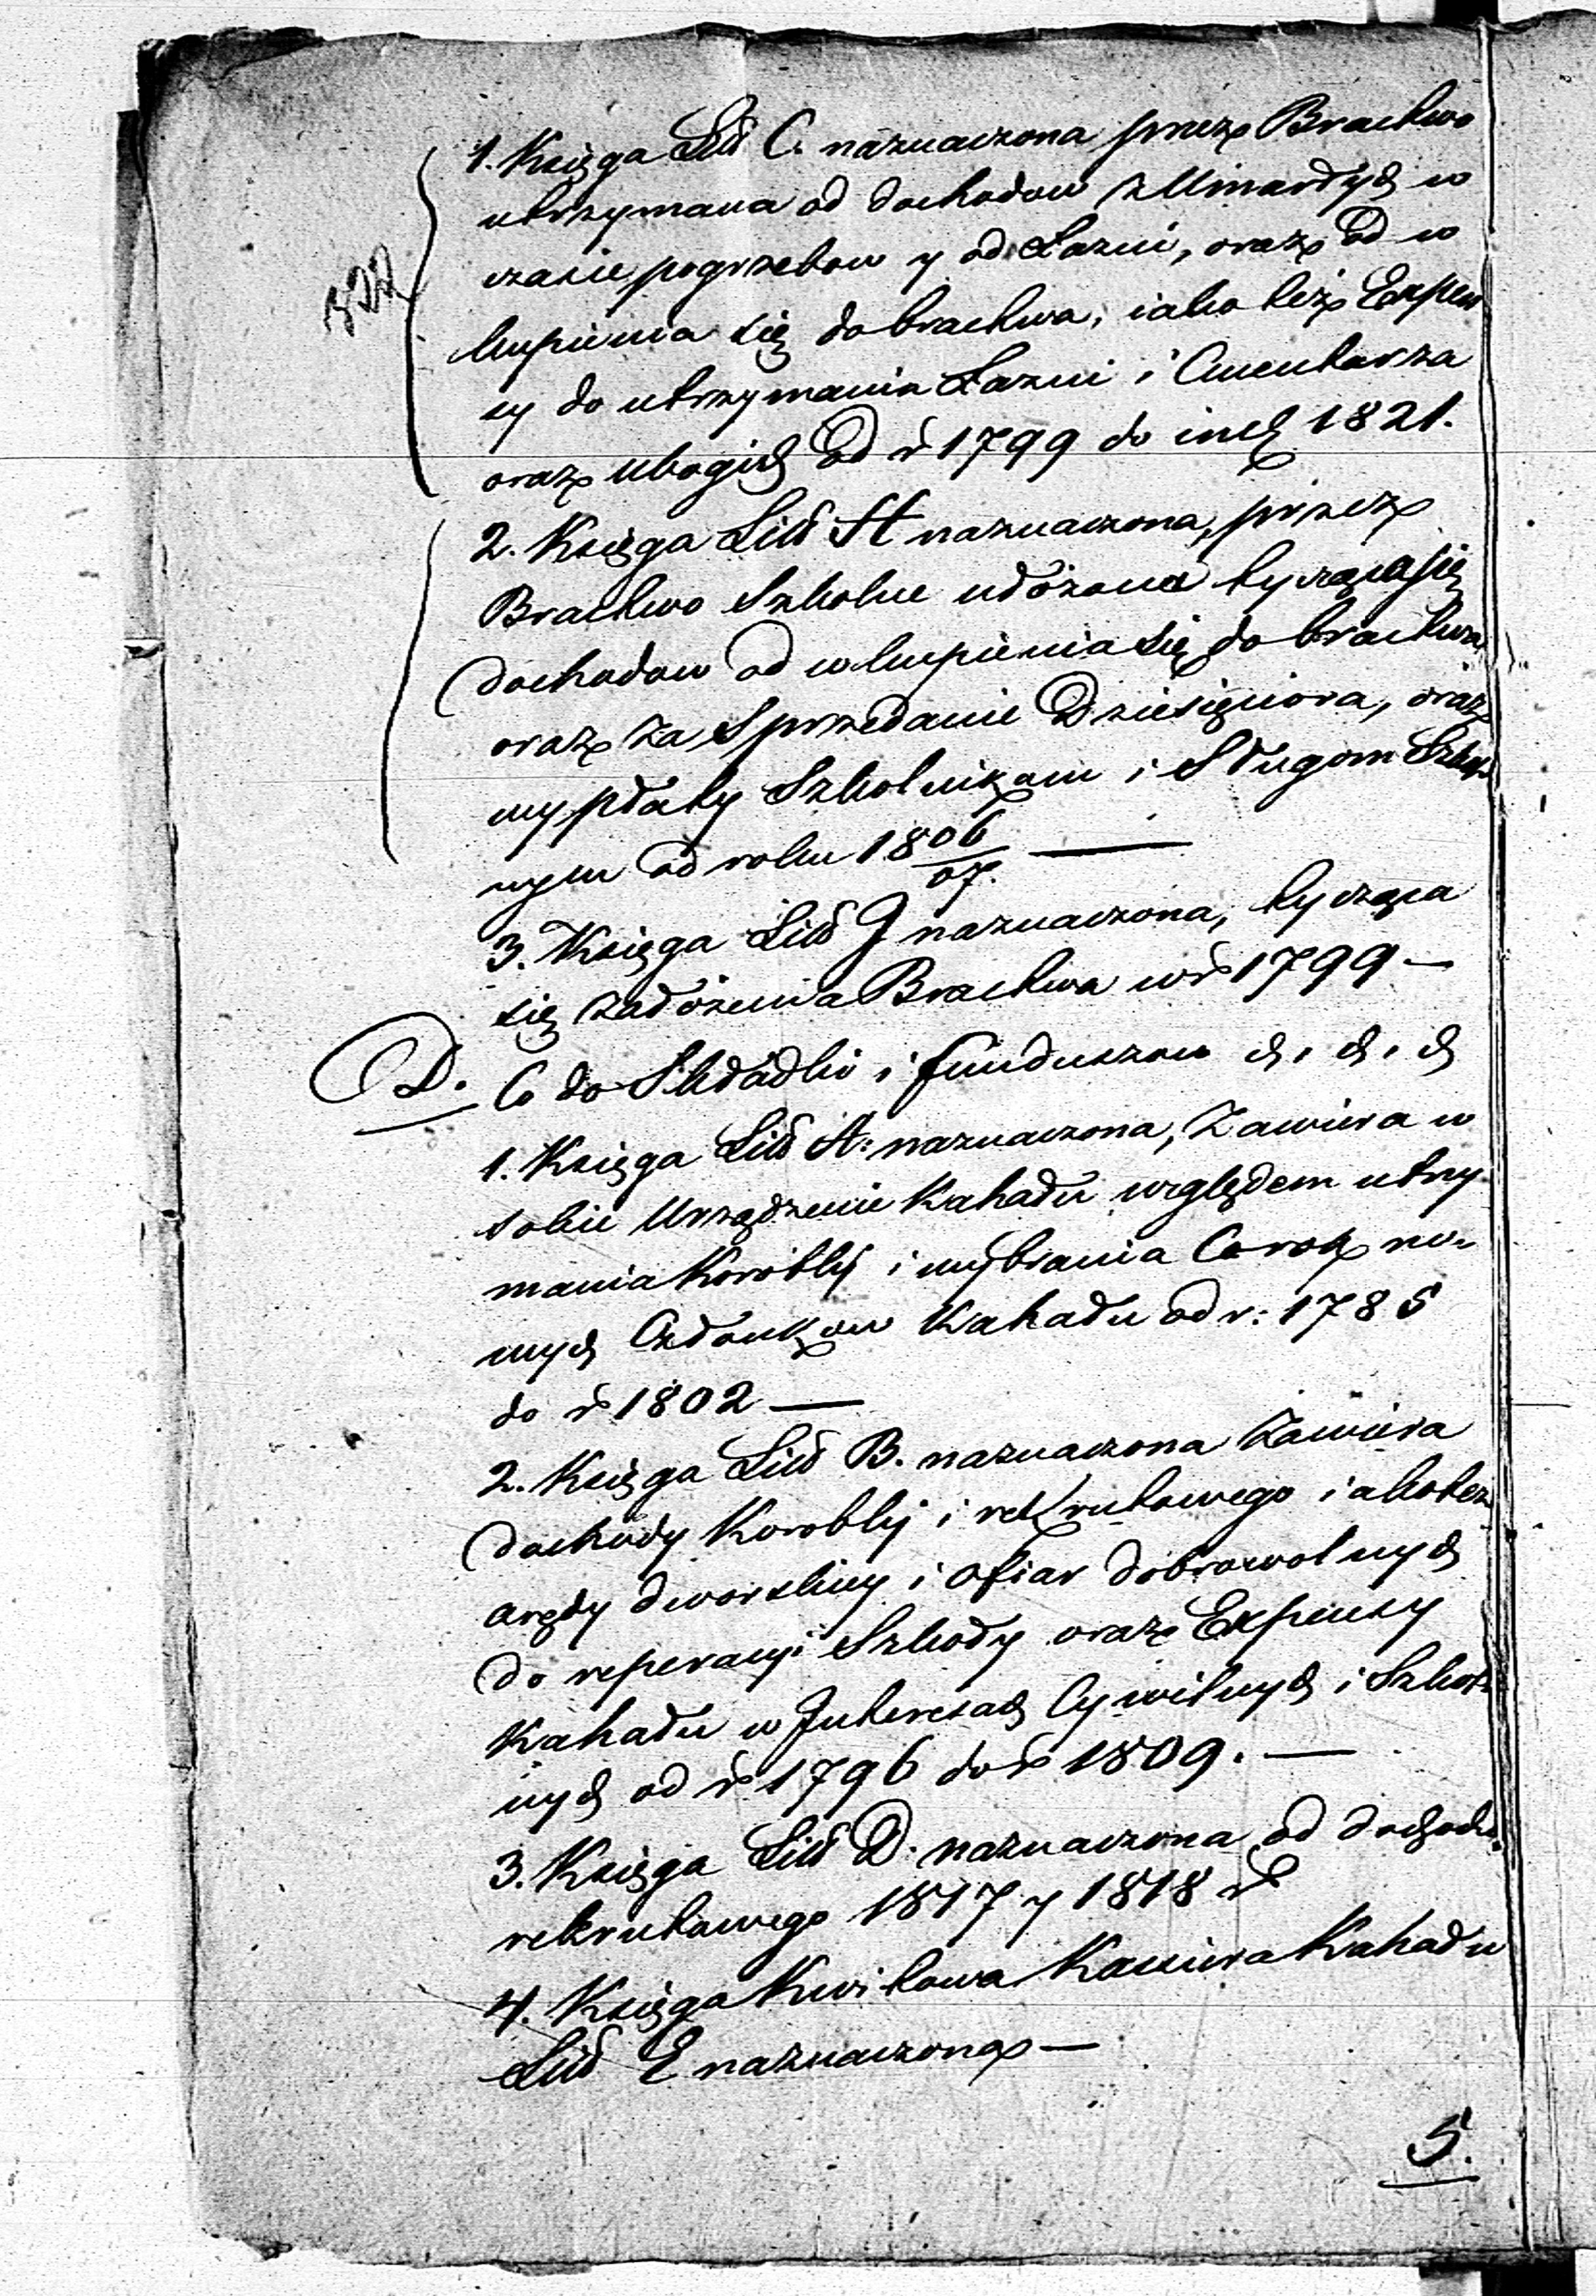 1. Księga Litt C. naznaczona przez Bractwo
utrzymana od dochodow z Umarłych w
czasie pogrzebow y od Łazni, oraz od w
kupienia się do bractwa, iako też Expen
sy do utrzymania Łazni i Cmentarza
oraz ubogich od r 1799 do incl 1821.
2. Księga Litt H naznaczona, przez
Bractwo Szkolne ułożona tycząca się
dochodow od wkupienia się do bractwa
oraz za Sprzedanie Dziesięciora, oraz
wypłaty Szkolnikom i Sługom Szkol
nym od roku 1806/07. —
3. Księga Litt J naznaczona, tycząca
się założenia Bractwa w r 1799 —
D. Co do Składki i funduszow
1. Księga Litt A: naznaczona, Zawiera w
sobie Urządzenie Kahału względem utrzy
mania Korobki i wybrania Coraz no=
wych Członkow Kahału od r: 1785
do r 1802 —
2. Księga Litt B. naznaczona Zawiera
dochody Korobki i rekrutowego iakotez
arędy dworskiey i ofiar dobrowolnych
do reperacyi Szkoły oraz Expensy
Kahału w Interesach Cywilnych i Szkol
nych od r 1796 do r 1809. —
3. Księga Litt D. naznaczona od dochodu
rekrutowego 1817 y 1818 r
4. Księga Kwitowa Kassiera Kahału
Litt E naznaczona —
5.